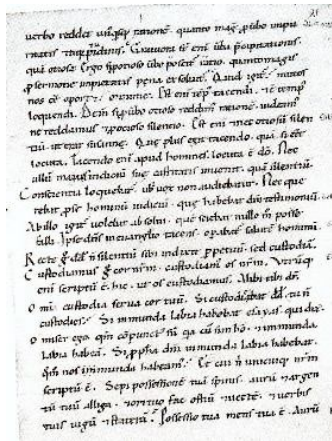 verbo reddet unusq;sq; rationē. quanto mag; p̄ verbo impu
ritatis
Graviora s̄t eni verba p̄cipitationis.
quā otiosa. Ergo si p̄ otioso verbo poscit̄ ratio. quanto magis
p̄ sermone impietatis pena exsoluit̄. Quid igit̄. mutos
nos eē oport&. minime. Est eni tēp; tacendi. & ē temp;
loquendi. Dein si p̄ verbo otioso reddim; ratione. videam;
ne reddamus & p̄ otioso silentio. Est eni silen
tiū. ut erat susanne. Que plus egit tacendo. quā si eēt
locuta. Tacendo eni apud homines. locuta ē dō. Nec
ullū maius indiciū sue castitatis inuenit. quā silentiū.
Conscientia loquebat̄. ubi uox non audiebat̄. Nec que
rebat p̄ se hominū iudiciū. que habebat dn̄i testimoniū.
Ab illo igit̄ volebat absolui. quē sciebat nullo m̄ posse
falli. Ipse dn̄s in euanglio tacens. opabat̄ salutē hominū.
Recte g̊ dd n̄ silentiū sibi indixit p̄petuū. sed custodiā.
Custodiamus g̊ cor nr̄m. custodiam; os nr̄m. Utrūq;
eni scriptū ē. hic. ut os custodiamus. Alibi tibi dr̄.
Omi custodia serua cor tuū. Si custodiebat dd. tu n̄
custodies. Si inmunda labia habebat esayas. qui dix.
O miser ego. qm̄ cōpunct; sū. qa cū sim hō. & inmunda
labia habeā. Si p̄pha dn̄i inmunda labia habebat.
qm̄ nos inmunda habeam;. Et cui n̄ unicuiq; nr̄m
scriptū ē. Sepi possessionē tuā spinis. aurū & argen
tū tuū alliga. & ori tuo fac ostiū & uectē. & verbis
tuis iugū & staterā. Possessio tua mens tua ē. Aurū